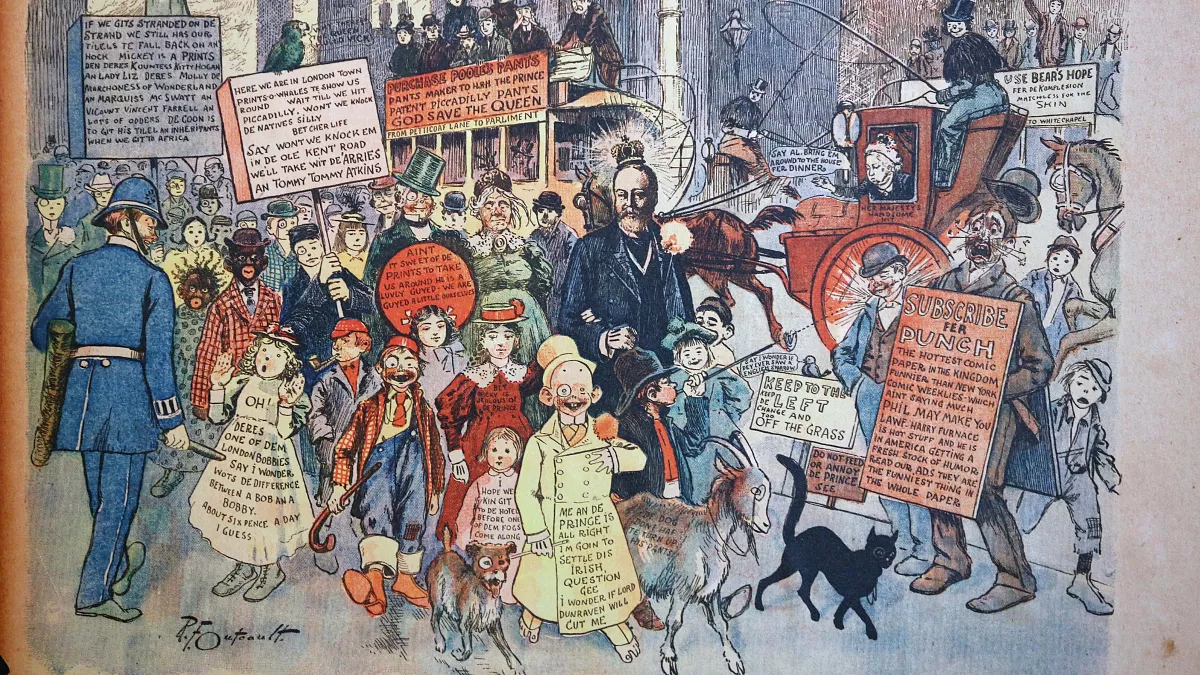 IF WE GITS STRANDED ON DE
STRAND WE STILL HAS OUR
TILELS TE FALL BACK ON AN
HOCK MICKEY IS A PRINTS
DEN DERES KOUNTESS KITTY HOGAN
AN LADY LIZ DERES MOLLY DE
MARCHONESS OF WONDERLAND
AN MARQUISS MC SWATT AN
VICOUNT VINCENT FARRELL AN
LOTS OF ODDERS DE COON IS
TO GIT HIS TILEL AN INHERIPANTS
WHEN WE GIT TO AFRICA
HERE WE ARE IN LONDON TOWN
PRINTS-O-WHALES TE SHOW US
ROUND WAIT TILL WE HIT
PICCADILLY: WONT WE KNOCK
DE NATIVES SILLY
BETCHER LIFE
SAY WONT WE KNOCK EM
IN DE OLE KENT ROAD
WE'LL TAKE WIT DE 'ARRIES
AN TOMMY TOMMY ATKINS
PURCHASE POOLES PANTS
PANTS MAKER TO H.R.H THE PRINCE
PATENT PICCADILLY PANTS
GOD SAVE THE QUEEN
FROM PETTICOAT LANE TO PARLIMENT
SAY AL. BRING EM
AROUND TO THE HOUSE
FER DINNER
HANDSOME
USE BEAR'S HOPE
FER DE KOMPLESION
MATCHLESS FOR THE
SKIN
TO WHITE CHAPEL
AINT
IT SWEET OF DE
PRINTS TO TAKE
US AROUND HE IS A
LUVLY GUYED - WE ARE
GUYED A LITTLE OURSELVES
OH!
DERES
ONE OF DEM
LONDON BOBBIES
SAY I WONDER
WOTS DE DIFFERENCE
BETWEEN A BOB AN A
BOBBY.
ABOUT SIX PENCE A DAY
I GUESS
MICKY IS
JEALOUS OF
DE PRINCE
I HOPE WE
KIN GIT
TO DE HOTEL
BEFORE ONE
OF DEM FOGS
COME ALONG
ME AN DE
PRINCE IS
ALL RIGHT
I'M GOIN TO
SETTLE DIS
IRISH,
QUESTION
GEE
I WONDER IF LORD
DUNRAVEN WILL
CUT ME
DOG
TURN UP
HIS PANTS
SAY I WONDER IF
DEY EVER SAW A
ENGLISH SPARROW
KEEP TO THE
KEEP
DE LEFT
CHANGE AND
TOO
OFF THE GRASS
DO NOT FEED
OR ANNOY
DE PRINCE
SEE
SUBSCRIBE
FER
PUNCH
THE HOTTEST COMIC
PAPER IN THE KINGDOM
FUNNIER THAN NEW YORK
COMIC WEEKLIES - WHICH
AINT SAYING MUCH
PHIL MAY MAKE YOU
LAWF. HARRY FURNACE
IS HOT STUFF AND HE IS
IN AMERICA GETTING A
FRESH STOCK OF HUMOR
READ OUR ADS THEY ARE
THE FUNNIEST THING IN
THE WHOLE PAPER
R.F. Outcault.